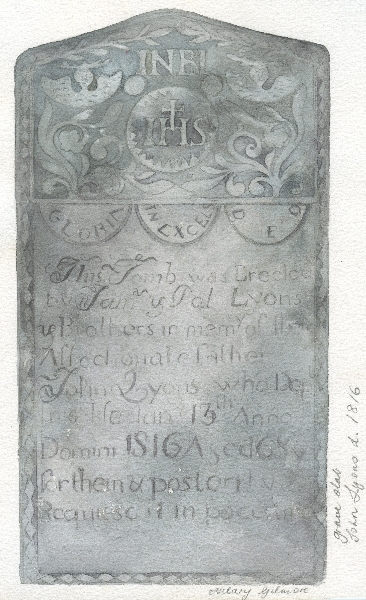 INRI
IHS
GLORIA IN EXCEL DEO
This Tomb was Erected
by Jams. & Pat Lyons
& Brothers in memy of their
Affectionate father
John Lyons who Dep
this life Jan 13th Anno
Domini 1816 Aged 68 y
for them & postori
Requiescat in pace
Hilary Gilmore
grave slab
John Lyons d. 1816